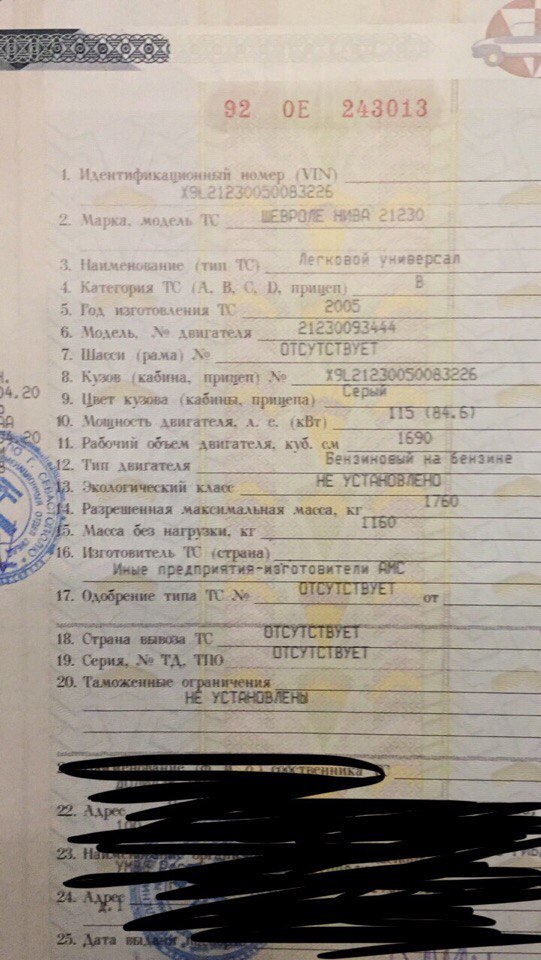 92 ОЕ 243013
1. Идентификационный номер (VIN)
X9L21230050083226
2. Марка, модель ТС ШЕВРОЛЕ НИВА 21230
3. Наименование (тип ТС) Легковой универсал
4. Категория ТС (А, В, С, D, прицеп) В
5. Год изготовления ТС 2005
6. Модель, № двигателя 21230093444
7. Шасси (рама) № ОТСУТСТВУЕТ
8. Кузов (кабина, прицеп) № X9L21230050083226
9. Цвет кузова (кабины, прицепа) Серый
10. Мощность двигателя, л. с. (кВт) 115 (84.6)
11. Рабочий объем двигателя, куб. см 1690
12. Тип двигателя Бензиновый на бензине
13. Экологический класс НЕ УСТАНОВЛЕНО
14. Разрешенная максимальная масса, кг 1760
15. Масса без нагрузки, кг 1160
16. Изготовитель ТС (страна)
Иные предприятия-изготовители АМС
17. Одобрение типа ТС № ОТСУТСТВУЕТ от
18. Страна вывоза ТС ОТСУТСТВУЕТ
19. Серия, № ТД, ТПО ОТСУТСТВУЕТ
20. Таможенные ограничения
НЕ УСТАНОВЛЕНЫ
собственника ТС
22. Адрес
23.
24. Адрес
25. Дата выдачи